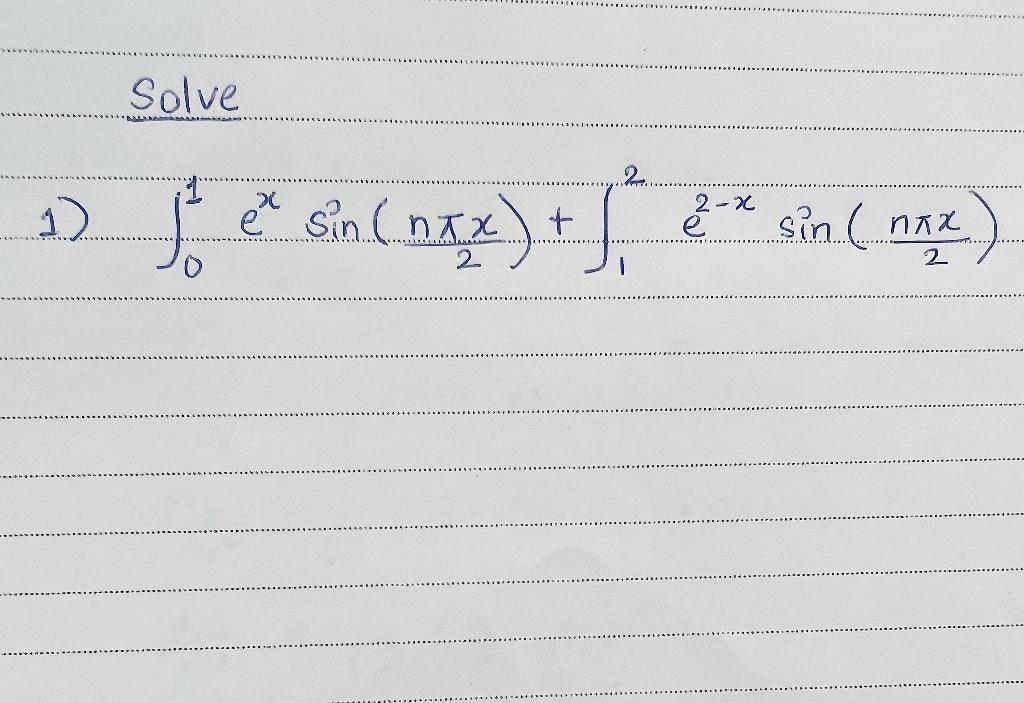 Solve
1) ∫₀¹ eˣ sin(nπx/2) + ∫₁² e²⁻ˣ sin(nπx/2)